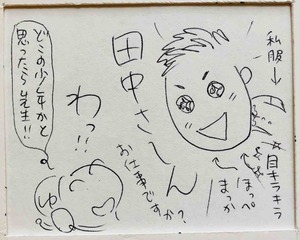 私服→
☆目キラキラ
ほっぺ
まっか
田中さーん
お仕事ですか?
わっ!!
どこの少年かと
思ったら先生!!